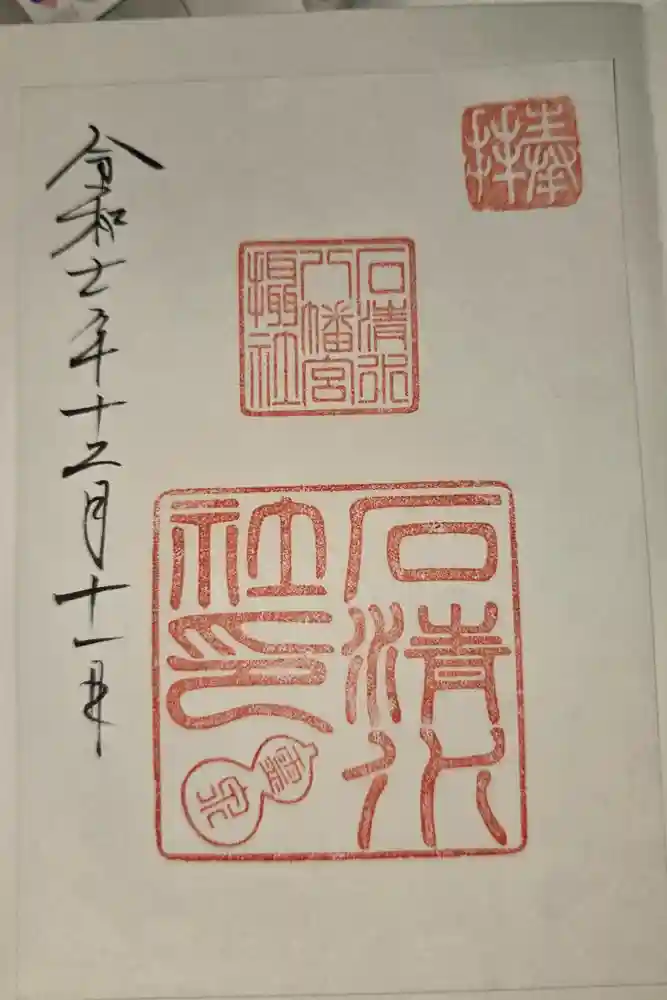 奉拝
石清水
八幡宮
摂社
石清水
社印
霊泉
令和七年十二月十一日